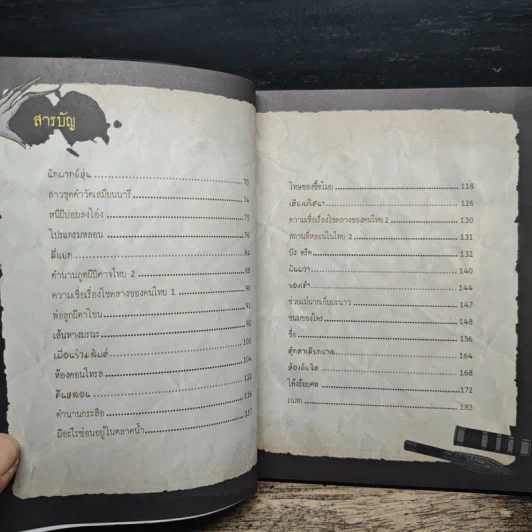 สารบัญ
นักพากย์หุ่น 70
สาวชุดดำวัดเสมียนนารี 74
หนีผีปอบลงโอ่ง 75
โปรแกรมหลอน 76
สี่แยก 84
ตำนานภูตผีปีศาจไทย 2 86
ความเชื่อเรื่องโชคลางของคนไทย 1 90
พ่อลูกผีตาโขน 91
เส้นทางมรณะ 92
เพื่อนร่วมลิฟต์ 100
ห้องคอนโทรล 104
คืนหลอน 112
ตำนานกระสือ 116
มีอะไรซ่อนอยู่ในตลาดน้ำ 117
โทษของขี้ขโมย 118
เสียงปริศนา 126
ความเชื่อเรื่องโชคลางของคนไทย 2 130
สถานที่หลอนในไทย 2 131
บึง ครืด 132
140
รองเท้า 144
ช่วยแม่นาคเก็บมะนาว 147
ขนมของใคร 148
ชื่อ 156
ตุ๊กตาเสียกบาล 164
ห้องดับจิต 168
โค้งร้อยศพ 172
เฉลย 182